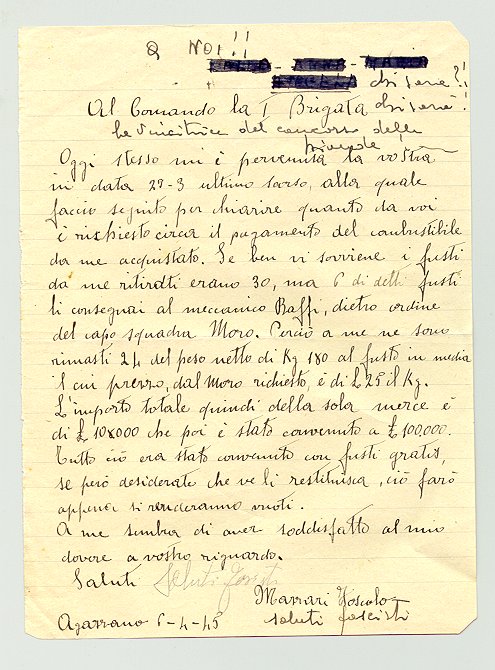 a NOI!!
chi sene?!!
Al Comando la I Brigata chi sene!
la vincitrice del concorso delle
Oggi stesso mi è pervenuta la vostra
in data 29-3 ultimo scorso, alla quale
faccio seguito per chiarire quanto da voi
è richiesto circa il pagamento del combustibile
da me acquistato. Se ben vi sovviene i fusti
da me ritirati erano 30, ma 6 di detti fusti
li consegnai al meccanico Baffi, dietro ordine
del capo squadra Moro. Perciò a me ne sono
rimasti 24 del peso netto di Kg 180 al fusto in media
il cui prezzo, dal Moro richiesto, è di £ 25 il Kg.
L'importo totale quindi della sola merce è
di £ 108000 che poi è stato convenuto a £ 100,000.
Tutto ciò era stato convenuto con fusti gratis,
se però desiderate che ve li restituisca, ciò farò
appena si renderanno vuoti.
A me sembra di aver soddisfatto al mio
dovere a vostro riguardo.
Saluti Saluti
Marrari Foscolo
Agazzano 6-4-45 saluti fascisti